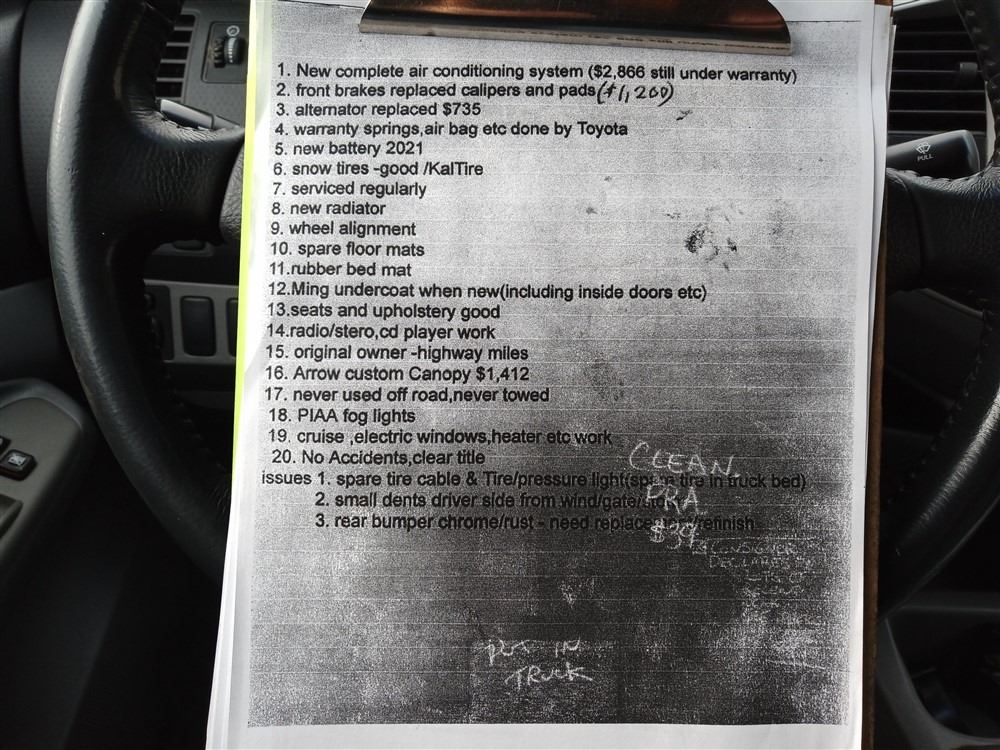 1. New complete air conditioning system ($2,866 still under warranty)
2. front brakes replaced calipers and pads ($1,200)
3. alternator replaced $735
4. warranty springs,air bag etc done by Toyota
5. new battery 2021
6. snow tires -good /KalTire
7. serviced regularly
8. new radiator
9. wheel alignment
10. spare floor mats
11.rubber bed mat
12.Ming undercoat when new(including inside doors etc)
13.seats and upholstery good
14.radio/stero,cd player work
15. original owner -highway miles
16. Arrow custom Canopy $1,412
17. never used off road,never towed
18. PIAA fog lights
19. cruise ,electric windows,heater etc work
20. No Accidents,clear title
CLEAN
issues 1. spare tire cable & Tire/pressure light(spare tire in truck bed)
2. small dents driver side from wind/gate/
3. rear bumper chrome/rust - need /refinish
CONSIGNER
DECLARES
PUT IN
TRUCK
PULL